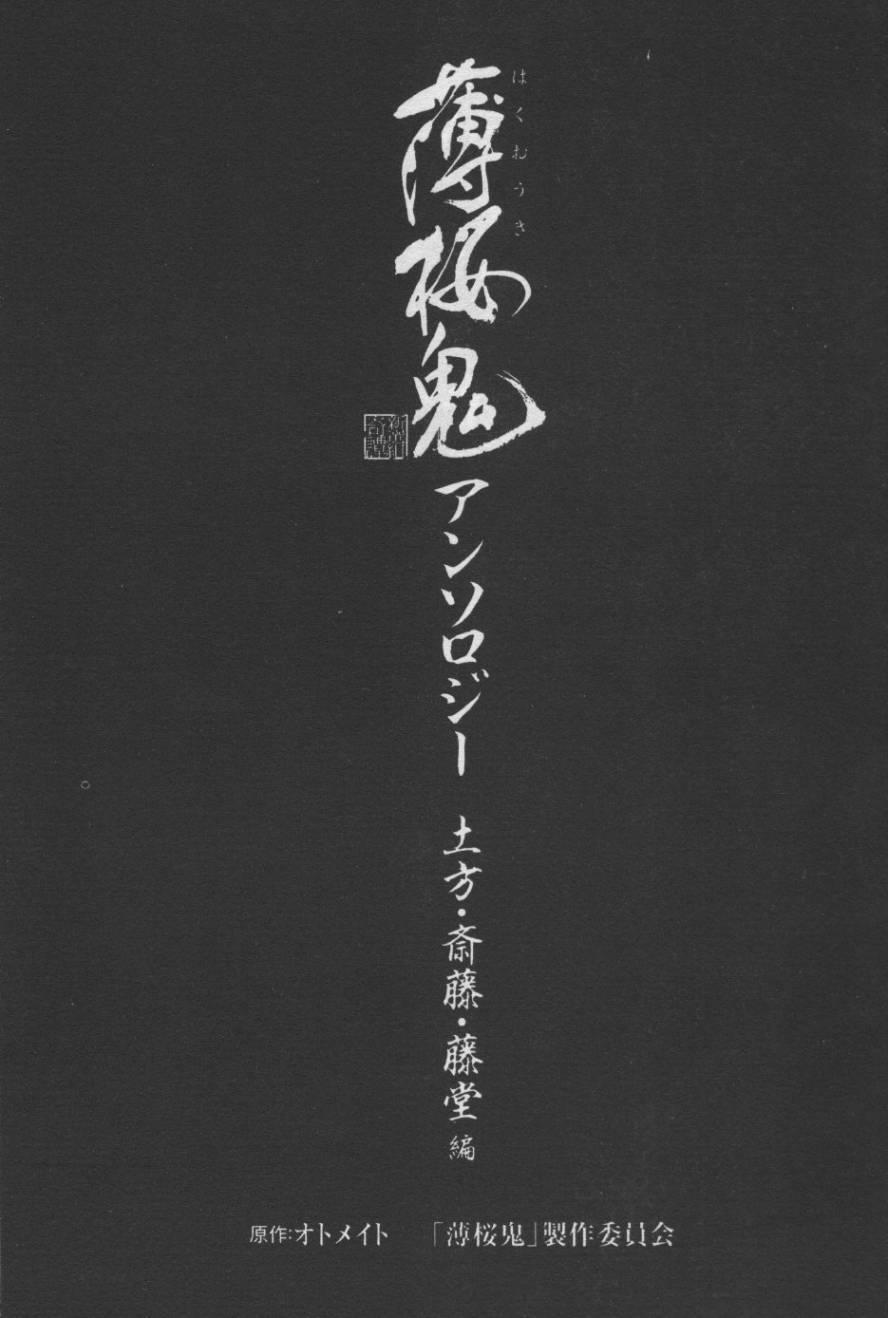 薄桜鬼
はくおうき
アンソロジー
土方・斎藤・藤堂 編
原作:オトメイト 「薄桜鬼」製作委員会